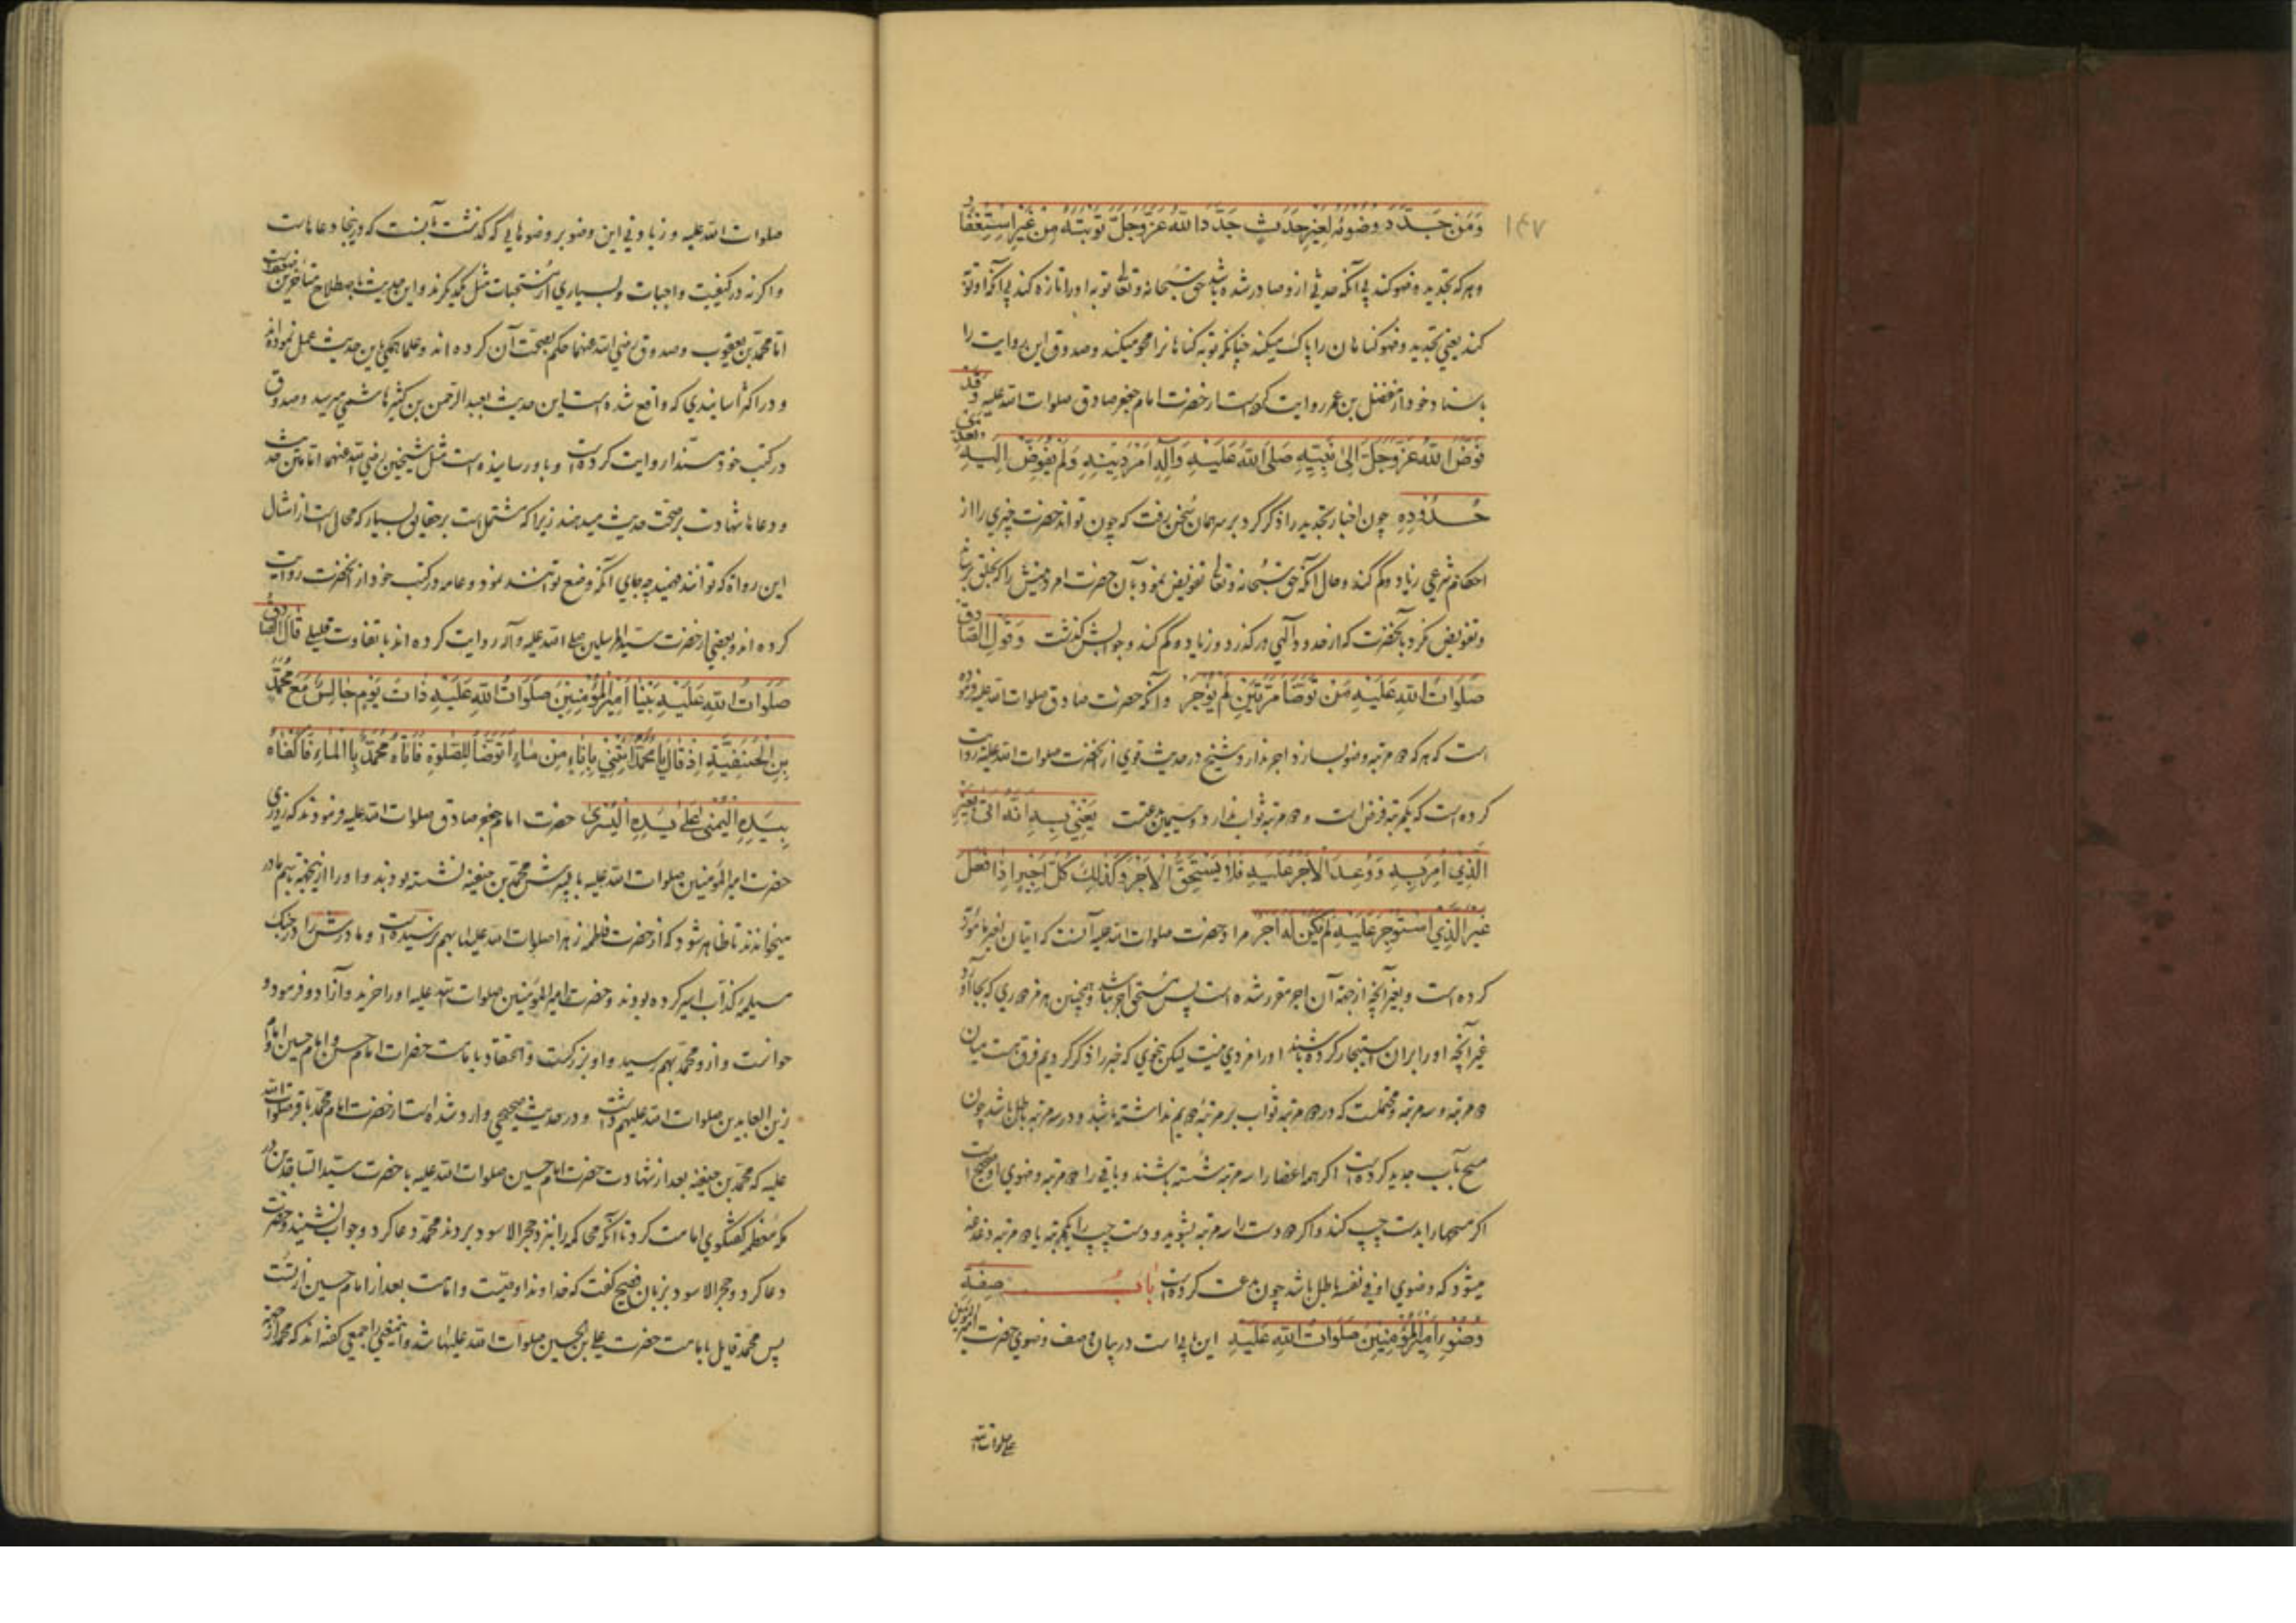 ۱۴۷
وَمَن جَدَّدَ وضوئهُ لِغَیرِ حَدَثٍ جَدَّدَ اللهُ عَزَّوَجَلَّ تَوبَتَهُ مِن غَیرِ استِغفَارٍ
و هر که تجدید وضو کند بی آنکه حدثی ازو صادر شده باشد حق سبحانه و تعالی توبه او را تازه کند بی آنکه او توبه
کند یعنی تجدید وضو کناهان را پاک میکند چنانکه توبه کناهانرا محو میکند و صدوق این روایت را
باسناد خود از مفضل بن عمر روایت کرده است از حضرت امام جعفر صادق صلوات الله علیه وَقَد
فَوَّضَ اللهُ عَزَّوَجَلَّ اِلیٰ نَبِیِّهِ صَلَّی اللهُ عَلَیهِ وَآلِهِ اَمرَ دِینِهِ وَلَم یُفَوِّض اِلَیهِ تَعَدِّی
حُدُودِهِ چون اخبار تجدید را ذکر کرد بر سر همان سخن رفت که چون تواند حضرت چیزی را از
احکام شرعی زیاد و کم کند و حال آنکه حق سبحانه و تعالی تفویض نمود بآن حضرت امر دینش را که بخلق رساند
و تفویض نکرد بآنحضرت که از حدود الهی در کذرد و زیاده و کم کند و جوابش کذشت وَقَولُ الصَّادِقِ
صَلَوَاتُ اللهِ عَلَیهِ مَن تَوَضَّأَ مَرَّتَینِ لَم یُوجَر و آنکه حضرت صادق صلوات الله علیه فرموده
است که هر که دو مرتبه وضو بسازد اجر ندارد و شیخ در حدیث قوی از آنحضرت صلوات الله علیه روایت
کرده است که یکمرتبه فرض است و دو مرتبه ثواب ندارد و سیم بدعتست یَعنِی بِهِ اَنَّهُ اَتیٰ بِغَیرِ
الَّذِی اُمِرَ بِهِ وَوُعِدَ الاَجرَ عَلَیهِ فَلَا یَستَحِقُّ الاَجرَ وَکَذٰلِکَ کُلُّ اَجِیرٍ اِذَا فَعَلَ
غَیرَ الَّذِی استُوجِرَ عَلَیهِ لَم یَکُن لَهُ اَجر مراد حضرت صلوات الله علیه آنست که اتیان بغیر مامور به
کرده است و بغیر آنچه از جهة آن اجر مقرر شده است پس مستحق اجر نباشد و همچنین هر مزدوری که بجا آورد
غیر آنچه او را بر آن استیجار کرده باشند او را مزدی نیست لیکن بنحوی که خبر را ذکر کردیم فرق هست میان
دو مرتبه و سه مرتبه و محتملست که در دو مرتبه ثواب بر مرتبه دویم نداشته باشد و در سه مرتبه باطل باشد چون
مسح بآب جدید کرده است اکر همه اعضا را سه مرتبه شسته باشند و باقی را دو مرتبه وضوی او صحیح است
اکر مسحها را بدست چپ کند و اکر دو دست را سه مرتبه بشوید و دست چپ را یکمرتبه یا دو مرتبه دغدغه
میشود که وضوی او فی نفسه باطل باشد چون بدعت کرده است بَابُ صِفَةِ
وُضُوءِ اَمِیرِالمُؤمِنِینَ صَلَوَاتُ اللهِ عَلَیهِ این بابیست در بیان وصف وضوی حضرت امیرالمؤمنین
علی صلوات الله
صلوات الله علیه و زیادتی این وضو بر وضوهایی که کذشت آنست که در اینجا دعاهاست
و اکرنه در کیفیت واجبات و بسیاری از مستحبات مثل یکدیکرند و این حدیث باصطلاح متأخرین ضعیفست
اما محمد بن یعقوب و صدوق رضی الله عنهما حکم بصحت آن کرده اند و علما همکی باین حدیث عمل نموده اند
و در اکثر اسانیدی که واقع شده است این حدیث بعبد الرحمن بن کثیر هاشمی میرسد و صدوق
در کتب خود مسندا روایت کرده است و باو رسانیده است مثل شیخین رضی الله عنهما اما متن حدیث
و دعاها شهادت بر صحت حدیث میدهند زیرا که مشتمل است بر حقایق بسیار که محال است از امثال
این رواة که توانند فهمید چه جای آنکه وضع توانند نمود و عامه در کتب خود از آنحضرت روایت
کرده اند و بعضی از حضرت سید المرسلین صلی الله علیه و آله روایت کرده اند با تفاوت قلیلی قالَ الصَّادِقُ
صَلَوَاتُ اللهِ عَلَیهِ بَینَا اَمِیرُالمُؤمِنِینَ صَلَوَاتُ اللهِ عَلَیهِ ذَاتَ یَومٍ جَالِسٌ مَعَ مُحَمَّدِ
بنِ الحَنَفِیَّةِ اِذ قَالَ یَا مُحَمَّدُ ائتِنِی بِاِنَاءٍ مِن مَاءٍ اَتَوَضَّأُ لِلصَّلوةِ فَاَتَاهُ مُحَمَّدٌ بِالمَاءِ فَاَکفَاهُ
بِیَدِهِ الیُمنیٰ عَلیٰ یَدِهِ الیُسریٰ حضرت امام جعفر صادق صلوات الله علیه فرمودند که روزی
حضرت امیر المؤمنین صلوات الله علیه با پسرش محمد بن حنفیه نشسته بودند و او را از اینجهة باسم مادر
میخوانند تا ظاهر شود که از حضرت فاطمه زهرا صلوات الله علیها بهم نرسیده است و مادرش را در جنک
مسیلمه کذاب اسیر کرده بودند و حضرت امیر المؤمنین صلوات الله علیه او را خرید و آزاد فرمود و
خواست و ازو محمد بهم رسید و او بزرکست و اعتقاد بامامت حضرات امام حسن و امام حسین و امام
زین العابدین صلوات الله علیهم داشت و در حدیث صحیح وارد شده است از حضرت امام محمد باقر صلوات الله
علیه که محمد بن حنفیه بعد از شهادت حضرت امام حسین صلوات الله علیه با حضرت سید الساجدین در
مکه معظمه کفتکوی امامت کرد تا آنکه محاکمه را بنزد حجر الاسود بردند محمد دعا کرد و جواب نشنید و حضرت
دعا کرد و حجر الاسود بزبان فصیح کفت که خداوندا وصیت و امامت بعد از امام حسین از تست
پس محمد قایل بامامت حضرت علی بن الحسین صلوات الله علیهما شد و جمعی کفته اند که محمد از